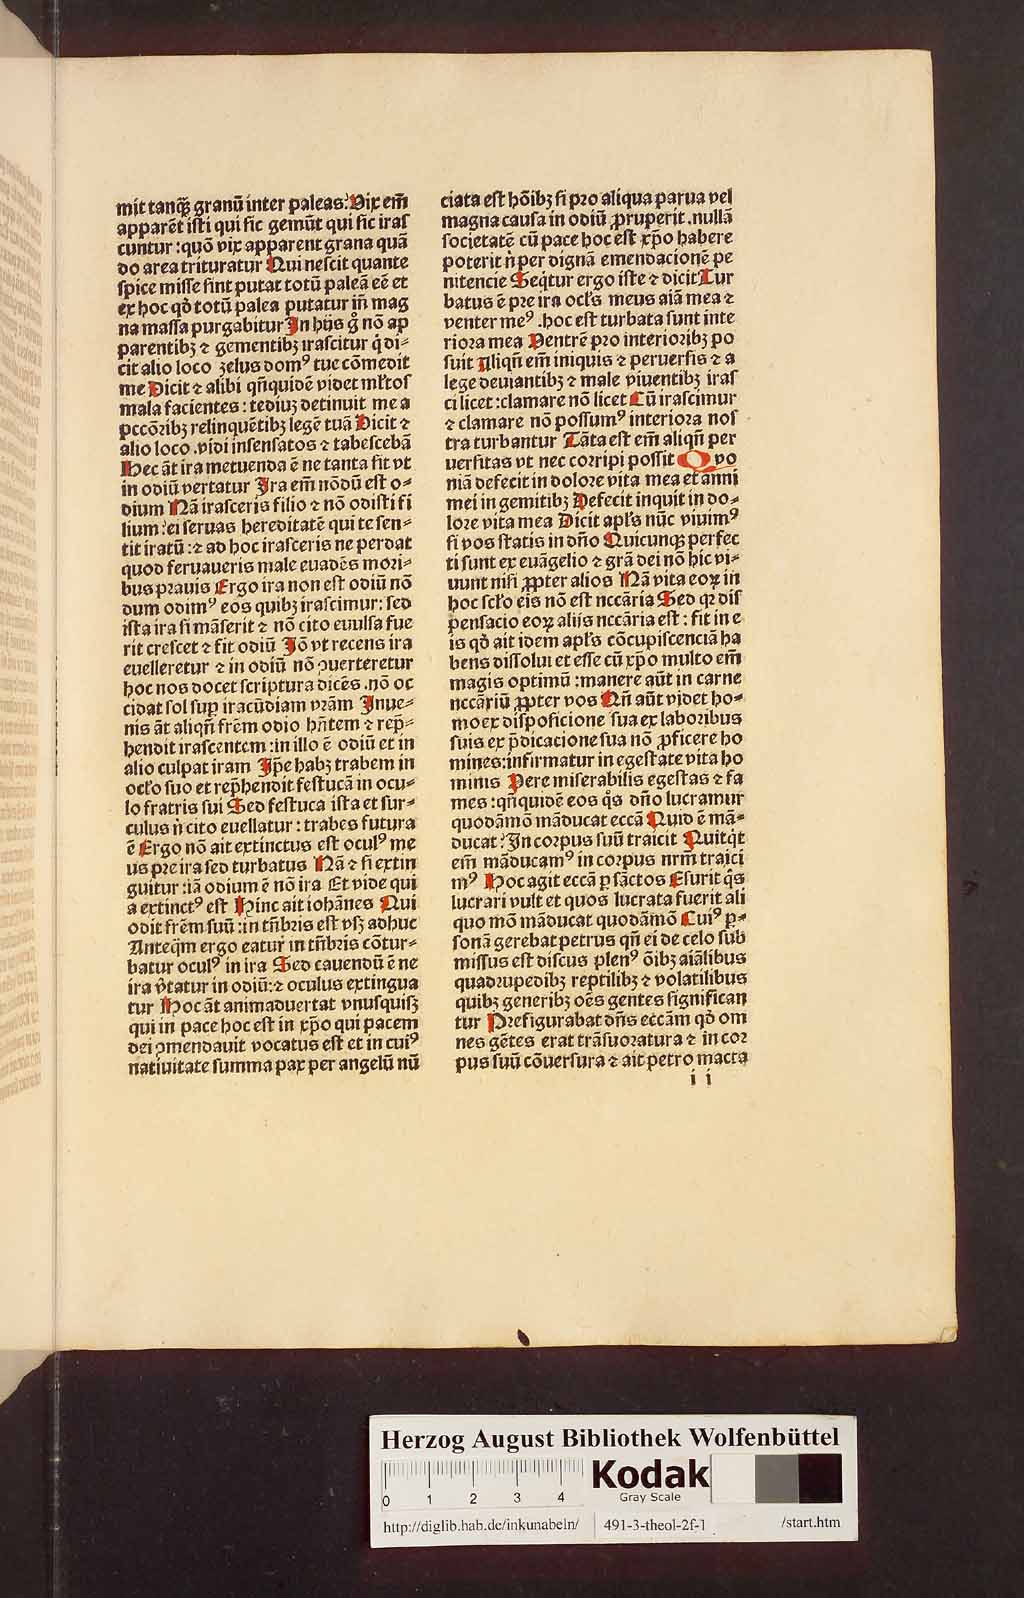 mit tanqꝫ granū inter paleas? Vix em̄
apparēt isti qui sic gemūt qui sic iras
cuntur : quō vix apparent grana quā
do area trituratur Qui nescit quante
spice misse sint putat totū paleā eē et
ex hoc qd̄ totū palea putatur in̄ mag
na massa purgabitur In hijs gͦ nō ap
parentibꝫ ⁊ gementibꝫ irascitur q̄ di⸗
cit alio loco zelus domꝰ tue cōmedit
me Dicit ⁊ alibi qn̄quidē videt ml̄tos
mala facientes : tediuꝫ detinuit me a
pccōribꝫ relinquētibꝫ legē tuā Dicit ⁊
alio loco .vidi insensatos ⁊ tabescebā
Hec āt ira metuenda ē ne tanta sit vt
in odiū vertatur Ira em̄ nōdū est o⸗
dium Nā irasceris filio ⁊ nō odisti fi
lium : ei seruas hereditatē qui te sen⸗
tit iratū : ⁊ ad hoc irasceris ne perdat
quod seruaueris male euadēs mori⸗
bus prauis Ergo ira non est odiū nō
dum odimꝰ eos quibꝫ irascimur : sed
ista ira si māserit ⁊ nō cito euulsa fue
rit crescet ⁊ fit odiū Iō vt recens ira
euelleretur ⁊ in odiū nō ꝯuerteretur
hoc nos docet scriptura dicēs .nō oc
cidat sol sup̄ iracūdiam vrām Inue⸗
nis āt aliqn̄ frēm odio hn̄tem ⁊ rep̄⸗
hendit irascentem : in illo ē odiū et in
alio culpat iram Ip̄e habꝫ trabem in
ocl̄o suo et rep̄hendit festucā in ocu⸗
lo fratris sui Sed festuca ista et sur⸗
culus n̄ cito euellatur : trabes futura
ē Ergo nō ait extinctus est oculꝰ me
us pre ira sed turbatus Nā ⁊ si extin
guitur : iā odium ē nō ira Et vide qui
a extinctꝰ est Hinc ait iohānes Qui
odit frēm suū : in tn̄bris est vsꝫ adhuc
Anteq̄m ergo eatur in tn̄bris cōtur⸗
batur oculꝰ in ira Sed cauendū ē ne
ira v̄tatur in odiū : ⁊ oculus extingua
tur Hoc āt animaduertat vnusquisꝫ
qui in pace hoc est in xp̄o qui pacem
dei ꝯmendauit vocatus est et in cuiꝰ
natiuitate summa pax per angelū nū
ciata est hōibꝫ si pro aliqua parua vel
magna causa in odiū ꝓruperit .nullā
societatē cū pace hoc est xp̄o habere
poterit n̄ per dignā emendacionē pe
nitencie Seq̄tur ergo iste ⁊ dicit Tur
batus ē pre ira ocl̄s meus aiā mea ⁊
venter meꝰ .hoc est turbata sunt inte
riora mea Ventrē pro interioribꝫ po
suit Aliqn̄ em̄ iniquis ⁊ peruersis ⁊ a
lege deuiantibꝫ ⁊ male viuentibꝫ iras
ci licet : clamare nō licet Cū irascimur
⁊ clamare nō possumꝰ interiora nos
tra turbantur Tāta est em̄ aliqn̄ per
uersitas vt nec corripi possit Quo
niā defecit in dolore vita mea et anni
mei in gemitibꝫ Defecit inquit in do⸗
lore vita mea Dicit apl̄s nūc viuimꝰ
si vos statis in dn̄o Quicunqꝫ perfec
ti sunt ex euāgelio ⁊ grā dei nō hic vi⸗
uunt nisi ꝓpter alios Nā vita eoꝝ in
hoc scl̄o eis nō est nccāria Sed qꝛ dis
pensacio eoꝝ alijs nccāria est : fit in e
is qd̄ ait idem apl̄s cōcupiscenciā ha
bens dissolui et esse cū xp̄o multo em̄
magis optimū : manere aūt in carne
nccāriū ꝓpter vos Qn̄ aūt videt ho⸗
mo ex disposicione sua ex laboribus
suis ex p̄dicacione sua nō ꝓficere ho
mines : infirmatur in egestate vita ho
minis Vere miserabilis egestas ⁊ fa
mes : qn̄quidē eos q̊s dn̄o lucramur
quodāmō māducat eccā Quid ē mā⸗
ducat? In corpus suū traicit Quitq̇t
em̄ māducamꝰ in corpus nr̄m traici
mꝰ Hoc agit eccā ꝑ sāctos Esurit q̊s
lucrari vult et quos lucrata fuerit ali
quo mō māducat quodāmō Cuiꝰ ꝑ⸗
sonā gerebat petrus qn̄ ei de celo sub
missus est discus plenꝰ ōibꝫ aiālibus
quadrupedibꝫ reptilibꝫ ⁊ volatilibus
quibꝫ generibꝫ oēs gentes significan
tur Prefigurabat dn̄s eccām qd̄ om
nes gētes erat trāsuoratura ⁊ in cor
pus suū cōuersura ⁊ ait petro macta
i i
Herzog August Bibliothek Wolfenbüttel
0 1 2 3 4
Kodak
Gray Scale
http://diglib.hab.de/inkunabeln/ 491-3-theol-2f-1 /start.htm